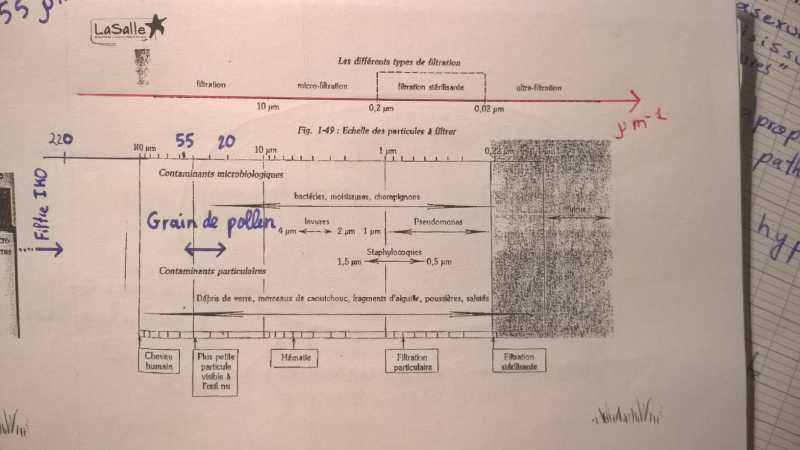 55 µm
LaSalle
Les différents types de filtration
filtration micro-filtration filtration stérilisante ultra-filtration
10 µm 0,2 µm 0,02 µm
µm-1
Fig. 1-49 : Echelle des particules à filtrer
220 100 µm 55 20 10 µm 1 µm 0,22 µm
Contaminants microbiologiques
bactéries, moisissures, champignons
Filtre IKO
Grain de pollen
levures Pseudomonas virus
4 µm 2 µm 1 µm
Staphylocoques
1,5 µm 0,5 µm
Contaminants particulaires
Débris de verre, morceaux de caoutchouc, fragments d'aiguille, poussières, saletés
Cheveu humain
Plus petite particule visible à l'œil nu
Hématie
Filtration particulaire
Filtration stérilisante
prop
path
hyp